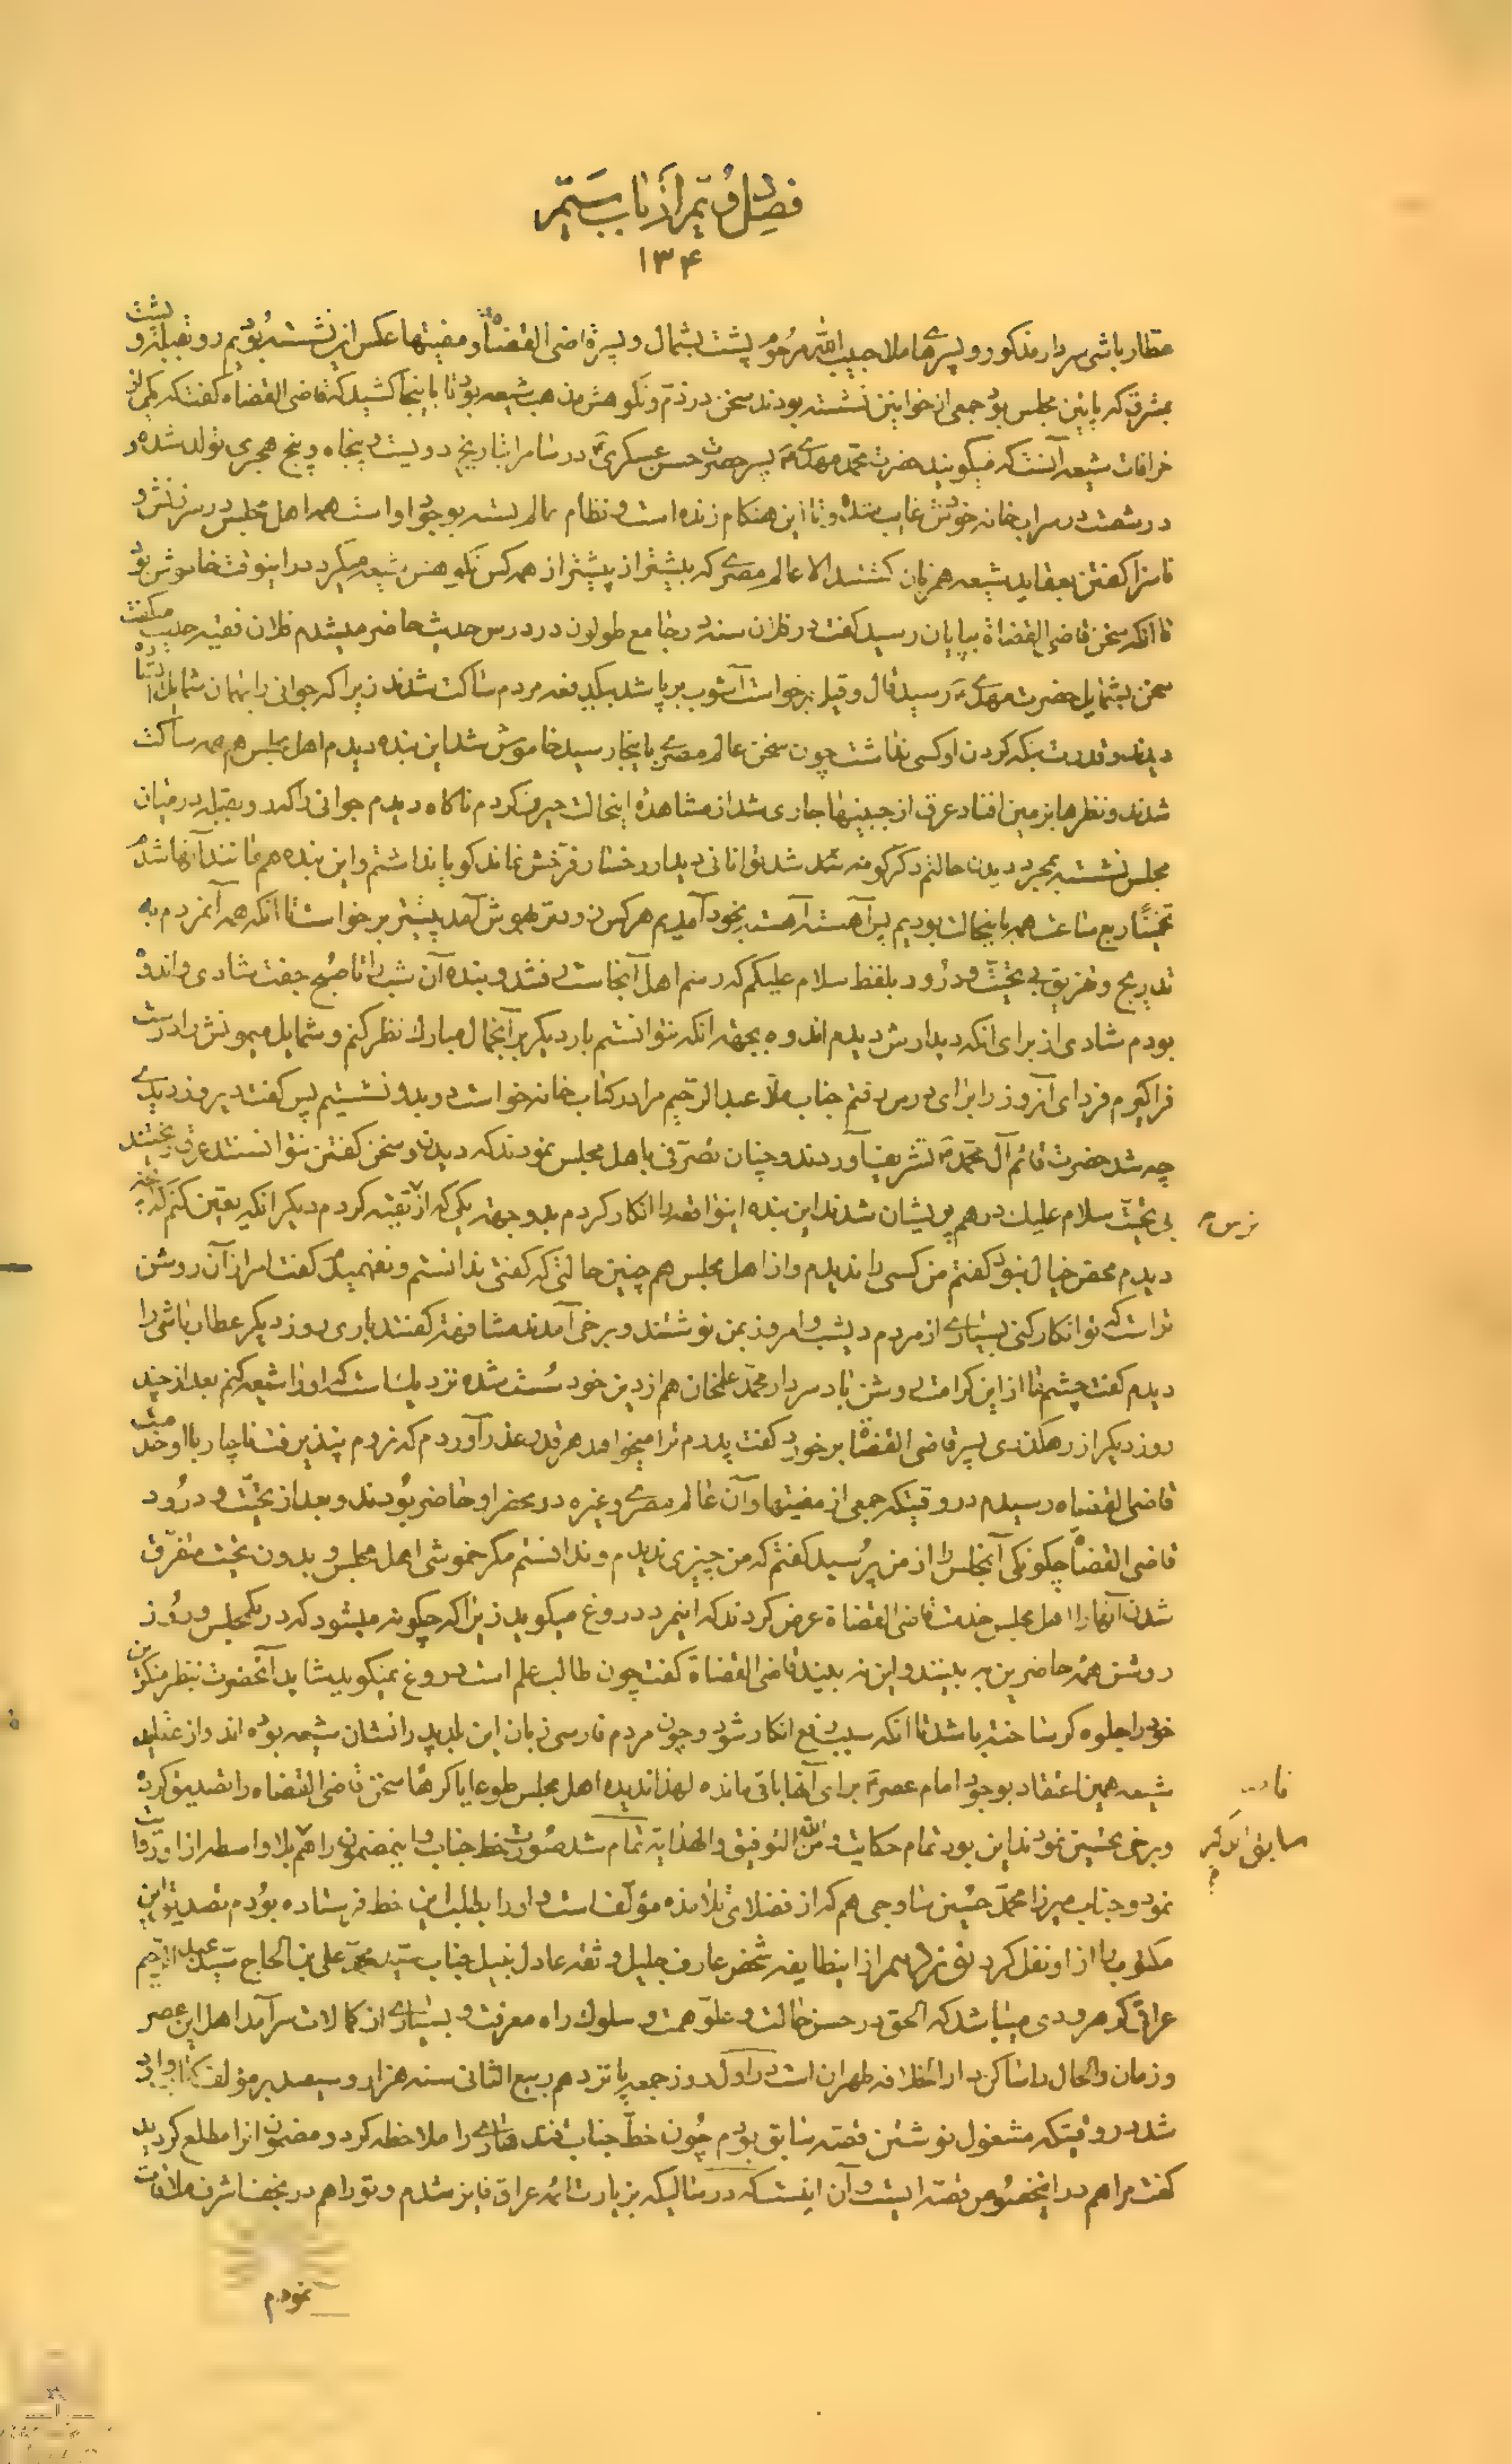 فصل دویم از باب ستم
۱۳۴
عطار باشی سردار مذکور و پسرهای ملا حبیب الله مرحوم پشت بشمال و پسر قاضی القضاة و مفتیها عکس این نشسته بودیم رو بقبله و پشت
بمشرق که پایین مجلس بود جمعی از خوانین نشسته بودند سخن در ذم و نکوهش مذهب شیعه بود تا باینجا کشید که قاضی القضاة گفت که یکی از
خرافات شیعه آنست که میگویند حضرت محمد مهدی پسر حضرت حسن عسکری در سامرا بتاریخ دویست و پنجاه و پنج هجری تولد شده و
در شصت در سراب خانه خودش غایب شده و تا این هنگام زنده است و نظام عالم بسته بوجود او است همه اهل مجلس در سرزنش و
ناسزا گفتن بعقاید شیعه همزبان گشتند الا عالم مصری که بیشتر از پیشتر از همه کس نکوهش شیعه میکرد در اینوقت خاموش بود
تا آنکه سخن قاضی القضاة بپایان رسید گفت در فلان سنه در جامع طولون در درس حدیث حاضر میشدم فلان فقیه حدیث میگفت
سخن بشمایل حضرت مهدی رسید قال و قیل برخواست آشوب برپا شد بیکدفعه مردم ساکت شدند زیرا که جوانی را بهمان شمایل ایستاده
دیدند و قدرت نگه کردن او کسی نداشت چون سخن عالم مصری باینجا رسید خاموش شد این بنده دیدم اهل مجلس هم همه ساکت
شدند و نظرها بزمین افتاد عرق از جبینها جاری شد از مشاهده اینحالت حیرت کردم ناگاه دیدم جوانی را که رو بقبله در میان
مجلس نشسته بمجرد دیدن حالتم دگرگونه شد توانائی دیدار رخسار فرخش نماند گویا نداشتم و این بنده هم مانند آنها شدم
تخمینا ربع ساعت همه باینحالت بودیم پس آهسته آهسته بخود آمدیم هر کس زودتر بهوش آمد پیشتر برخواست تا آنکه همه آنمردم به
تدریج و تفریق بی تحیت و درود بلفظ سلام علیکم که رسم اهل آنجاست رفتند و بنده آن شب را تا صبح جفت شادی و اندوه
بودم شادی از برای آنکه دیدارش دیدم اندوه بجهة آنکه نتوانستم بار دیگر بر آنجمال مبارک نظر کنم و شمایل میمونش را درست
فرا گیرم فردای آنروز را برای درس رفتم جناب ملا عبد الرحیم مرا در کتاب خانه خواست و بدو نشستیم پس گفت دیروز دیدی
چه شد حضرت قائم آل محمد تشریف آوردند و چنان تصرفی باهل مجلس نمودند که دیدند و سخن گفتن نتوانستند عرق ریختند
بی تحیت سلام علیک درهم پریشان شدند این بنده اینواقعه را انکار کردم بدو جهة یکی که از ترس تقیه کردم دیگر آنکه یقین کنم که آنچه
دیدم محض خیال نبود گفتم من کسی را ندیدم و از اهل مجلس هم چنین حالتی که گفتی ندانستم و نفهمیدم گفت امر از آن روشن
تر است که تو انکار کنی بسیاری از مردم دیشب و امروز بمن نوشتند و برخی آمدند مشافهة گفتند باری روز دیگر عطار باشی را
دیدم گفت چشم ما از این کرامت روشن باد سردار محمد علمخان هم از دین خود سست شده نزدیک است که او را شیعه کنم بعد از چند
روز دیگر از رهگذری پسر قاضی القضاة برخورد گفت پدرم ترا میخواهد هر قدر عذر آوردم که نروم نپذیرفت ناچار با او خدمت
قاضی القضاة رسیدم در وقتیکه جمعی از مفتیها و آن عالم مصری و غیره در محضر او حاضر بودند و بعد از تحیت و درود
قاضی القضاة چگونگی آنمجلس را از من پرسید گفتم که من چیزی ندیدم و ندانستم مگر خموشی اهل مجلس و بدون تحیت متفرق
شدن آنها را اهل مجلس خدمت قاضی القضاة عرض کردند که اینمرد دروغ میگوید زیرا که چگونه میشود که در یکمجلس و روز
روشن همه حاضرین به بینند و این نه بیند قاضی القضاة گفت چون طالب علم است دروغ نمیگوید شاید آنحضرت بنظر منکرین
خود را جلوه گر ساخته باشد تا آنکه سبب رفع انکار شود و چون مردم فارسی زبان این بلد پدرانشان شیعه بوده اند و از عقاید
شیعه همین اعتقاد بوجود امام عصر برای آنها باقی مانده لهذا ندیده اهل مجلس طوعا یا کرها سخن قاضی القضاة را تصدیق کرده
و برخی تحسین نمودند این بود تمام حکایت و من الله التوفیق و الهدایة تمام شد صورت خط جناب و اینمضمون را هم بلا واسطه از او روایت
نمود و جناب میرزا محمد حسین ساوجی هم که از فضلای تلامذه مؤلف است و او را بطلب این خط فرستاده بودم تصدیق این
مکتوب را از او نقل کرد از اینطایفه شخص عارف جلیل و ثقه عادل نبیل جناب سید محمد علی بن الحاج سید عبد الرحیم
عراقی کرهرودی میباشد که الحق در حسن حالت و علو همت و سلوک راه معرفت و بسیاری از کمالات سرآمد اهل این عصر
و زمان و الحال ساکن دار الخلافه طهران است در اول روز جمعه پانزدهم ربیع الثانی سنه هزار و سیصد بر مؤلف کتاب وارد
شد در وقتیکه مشغول نوشتن قصه سابق بودم چون خط جناب قندهاری را ملاحظه کرد و مضمون آنرا مطلع گردید
گفت مرا هم در اینخصوص قصه ایست و آن اینست که در سالیکه بزیارت ائمه عراق فایز شدم و تو را هم در نجف اشرف ملاقات
نمودم